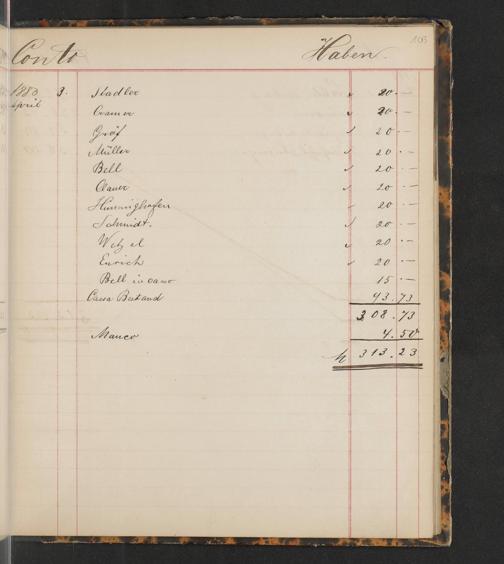 103
Conto Haben.
1883 April 3. Stadler 20.—
Cramer 20.—
Gräf 20.—
Müller 20.—
Bell 20.—
Clauer 20.—
20.—
Schmidt. 20.—
Wetzel 20.—
Enrich 20.—
Bell 15.—
Cassa Bestand 43.73
308.73
Manco 4.50
M 313.23